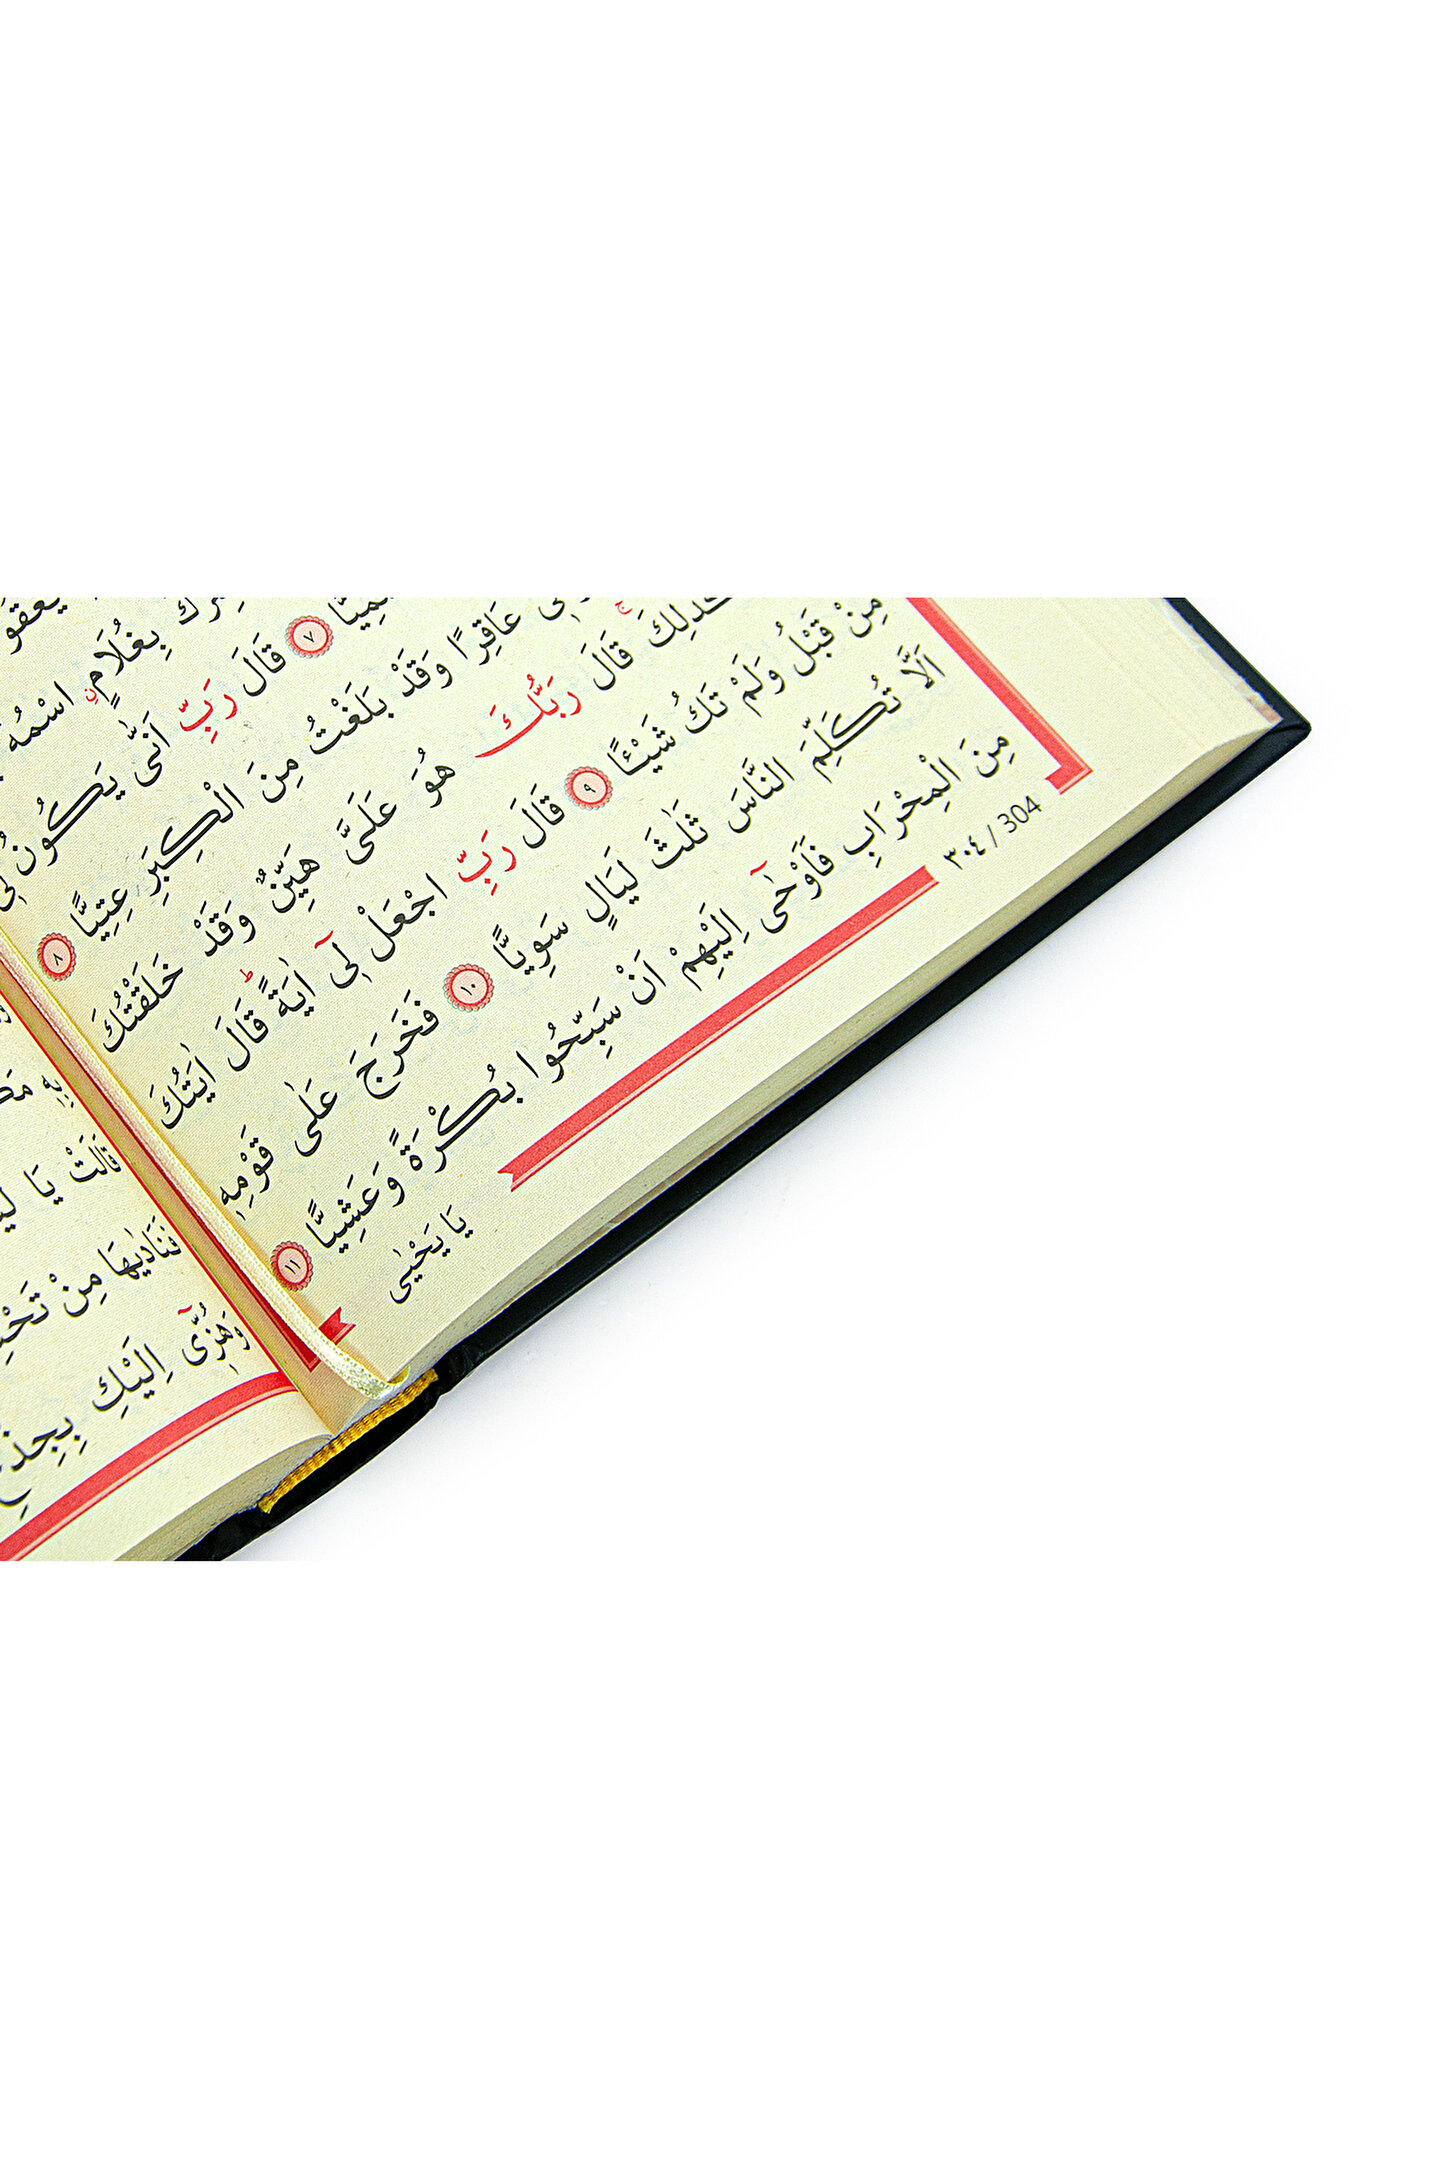 بِغُلَامٍۨ اسْمُهُ
قَالَ رَبِّ اَنّٰى يَكُونُ ل۪ي ٧
عَاقِرًا وَقَدْ بَلَغْتُ مِنَ الْكِبَرِ عِتِيًّا ٨
كَذٰلِكَۚ قَالَ رَبُّكَ هُوَ عَلَيَّ هَيِّنٌ وَقَدْ خَلَقْتُكَ
مِنْ قَبْلُ وَلَمْ تَكُ شَيْـًٔا ٩ قَالَ رَبِّ اجْعَلْ ل۪ٓي اٰيَةًۜ قَالَ اٰيَتُكَ
اَلَّا تُكَلِّمَ النَّاسَ ثَلٰثَ لَيَالٍ سَوِيًّا ١٠ فَخَرَجَ عَلٰى قَوْمِه۪
مِنَ الْمِحْرَابِ فَاَوْحٰٓى اِلَيْهِمْ اَنْ سَبِّحُوا بُكْرَةً وَعَشِيًّا ١١
٣٠٤ / 304
يَا يَحْيٰى
بِه۪
قَالَتْ يَا
فَنَادٰيهَا مِنْ
وَهُزّ۪ٓي اِلَيْكِ